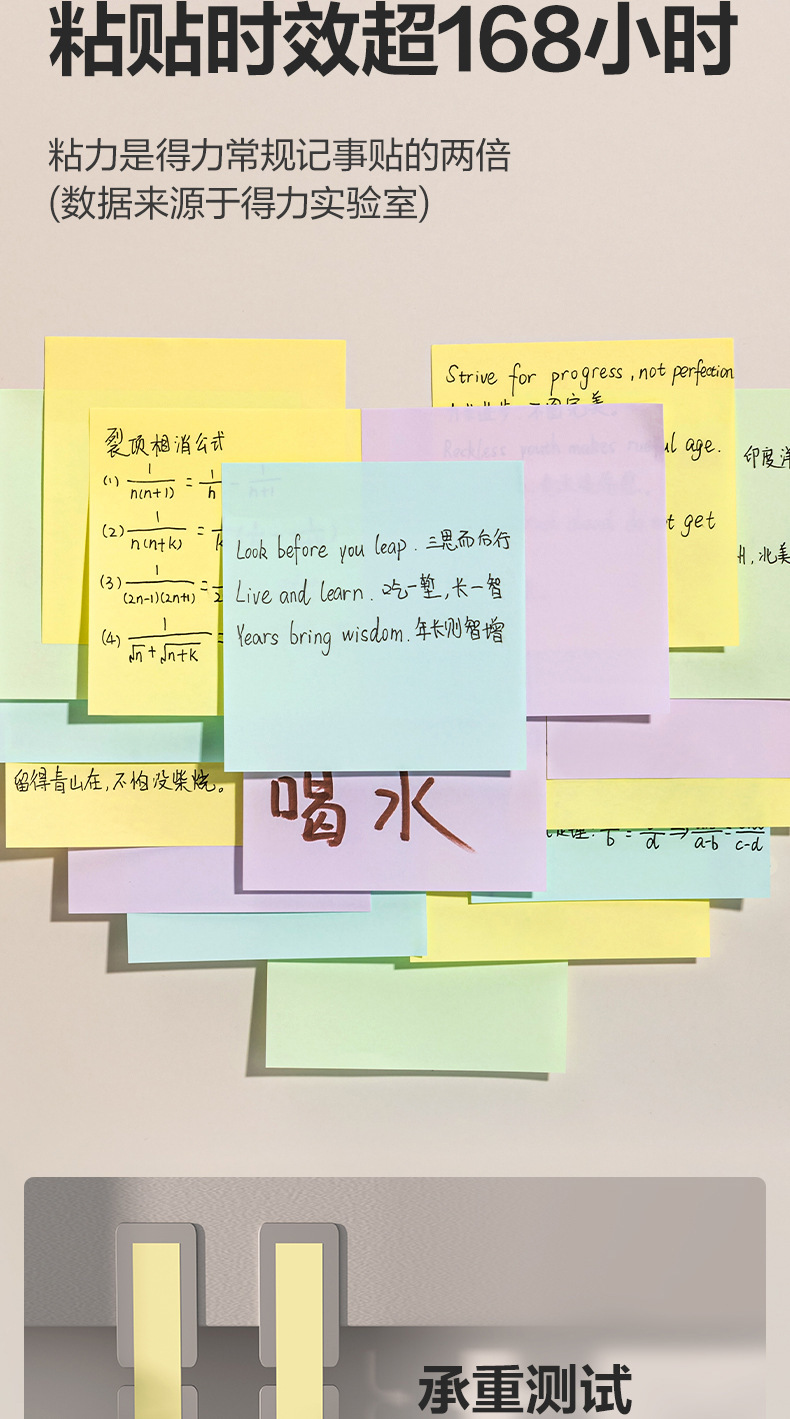 粘贴时效超168小时
粘力是得力常规记事贴的两倍
(数据来源于得力实验室)
Strive for progress, not perfection
Reckless youth makes rueful age.
t get
印度洋
北美
裂项相消公式
(1) 1/n(n+1) = 1/n - 1/n+1
(2) 1/n(n+k) =
(3) 1/(2n-1)(2n+1) =
(4) 1/√n+√n+k =
Look before you leap. 三思而后行
Live and learn. 吃一堑,长一智
Years bring wisdom. 年长则智增
留得青山在,不怕没柴烧。
喝水
承重测试